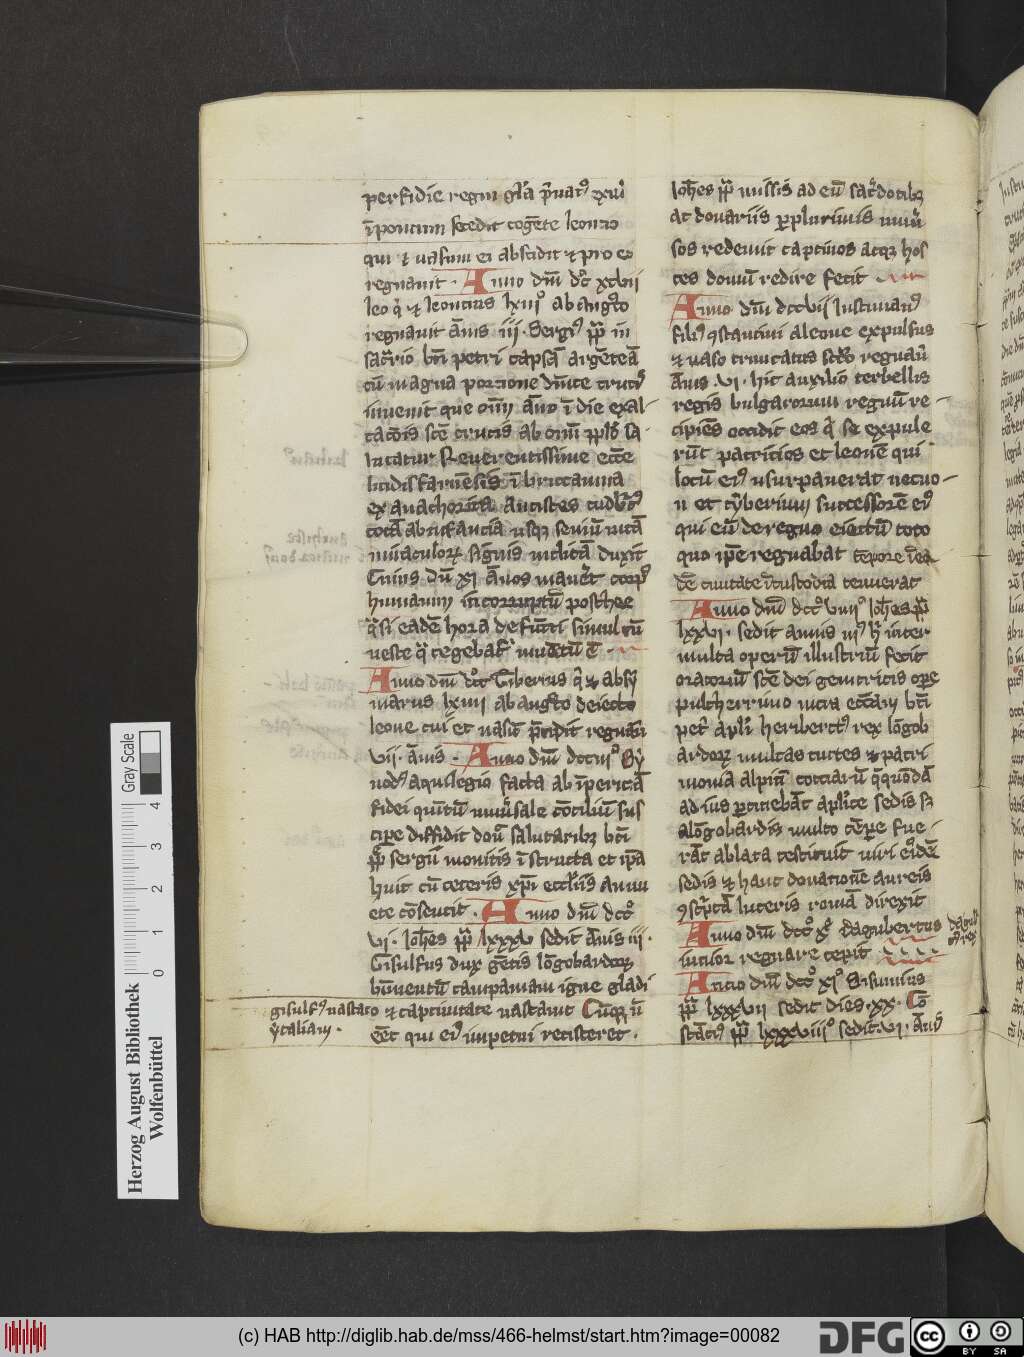 perfidie regni gl̄ia p̄uatꝰ exul
ī pontum secedit cogēte leontio
qui ⁊ nasum ei abscidit ⁊ pro eo
regnauit · Anno dn̄i dc̄ xcvii
leo q̓ ⁊ leontius lxiiiꝰ ab augᷤto
regnauit ān̄is iii · Sergiꝰ pp̄ in
sac̓rio bt̄i petri capsā argēteā
cū magna portione dn̄ice crucꝭ
inuenit que om̄i āno ī die exal-
tacōis sc̄e crucis ab om̄i pp̄lo sa-
lutatur Reuerentissime ecc̄e
lindisfarnēsis ī brittannia
ex anachorita antistes cudb̄tꝰ
totā ab infancia usqꝫ seniū uitā
miraculoꝝ signis inclitā duxit
Cuius dū xi ānos manẻt corpꝰ
humatum incorruptū post hec
q̓si eadē hora defūcti simul cū
ueste q̓ tegebatᷣ inuētū ē ·
Anno dn̄i dcc̄ Tiberius q̓ ⁊ absy
marus lxiiii ab augᷤto deiecto
leone cui et nasū p̄cidit regnaũ
vii · ān̄is · Anno dn̄i dcciiiꝰ Sy
nodꝰ aquilegio facta ab īpericiā
fidei quītū uniũsale cōciliū sus
cipe diffidit don̄ salutaribꝫ bt̄i
pp̄ sergii monitis īstructa et ip̄a
huit cū ceteris xp̄i eccl̄iis annu
ere cōsentit · Anno dn̄i dccꝰ
vi · Ioh̄es pp̄ lxxxv sedit ān̄is iii ·
Gisulfus dux gētis lōgobardoꝝ
bn̄uentū campaniam igne gladi
gisulfꝰ uastato ⁊ captiuitate uastauit Cūqꝫ n̄
ytaliam · eēt qui eiꝰ impetui resisteret ·
Ioh̄es pp̄ missis ad eū sac̓dotibꝫ
ac donariis p̲plurimis uniũ
sos redemit captiuos atqꝫ hos
tes domū redire fecit
Anno dn̄i dccvii Iustinianꝰ
filiꝰ ꝯstantini a leone expulsus
⁊ naso truncatus sc̄do regnaũ
ān̄is vi · hic auxilio terbellis
regis bulgarorum regnū re-
cipiēs occidit eos q̓ se expule
rūt patricios et leonē qui
locū eiꝰ usurpauerat necno-
n et tyberium successorē eiꝰ
qui eū de regno eiectū toto
quo ip̄e regnabat tēpore ī ea
dē ciuitate ī custodia tenuerat
Anno dn̄i dccꝰ viiiiꝰ Ioh̄es pp̄
lxxvi · sedit annis iiiꝰ hͥ inter
multa operū illustriū fecit
oratoriū sc̄e dei genitricis ope
pulcherrimo intra ecc̄iam bt̄i
petͥ apl̄i heribertꝰ rex lōgob
ardoꝝ multas curtes ⁊ patri
monia alpiū cocciarū q̄ quōdā
ad ius p̲tinebāt apl̄ice sedis sꝫ
a lōgobardis multo tēpe fue-
rāt ablata restituit iuri eiꝰdē
sedis ⁊ hanc donationē aureis
ꝯsc̓ptā litteris romā direxit
Anno dn̄i dccꝰ xꝰ dagubertus
dagub
tꝰ rex
iunior regnare cepit
Anno dn̄i dccꝰ xiꝰ Sisinnius
pp̄ lxxxvii sedit dies · xx · Cō
stātiꝰ pp̄ lxxxviiiꝰ sedit · vi · ān̄is
Herzog August Bibliothek
Wolfenbüttel
0 1 2 3 4
Gray Scale
(c) HAB http://diglib.hab.de/mss/466-helmst/start.htm?image=00082
DFG
cc
BY SA